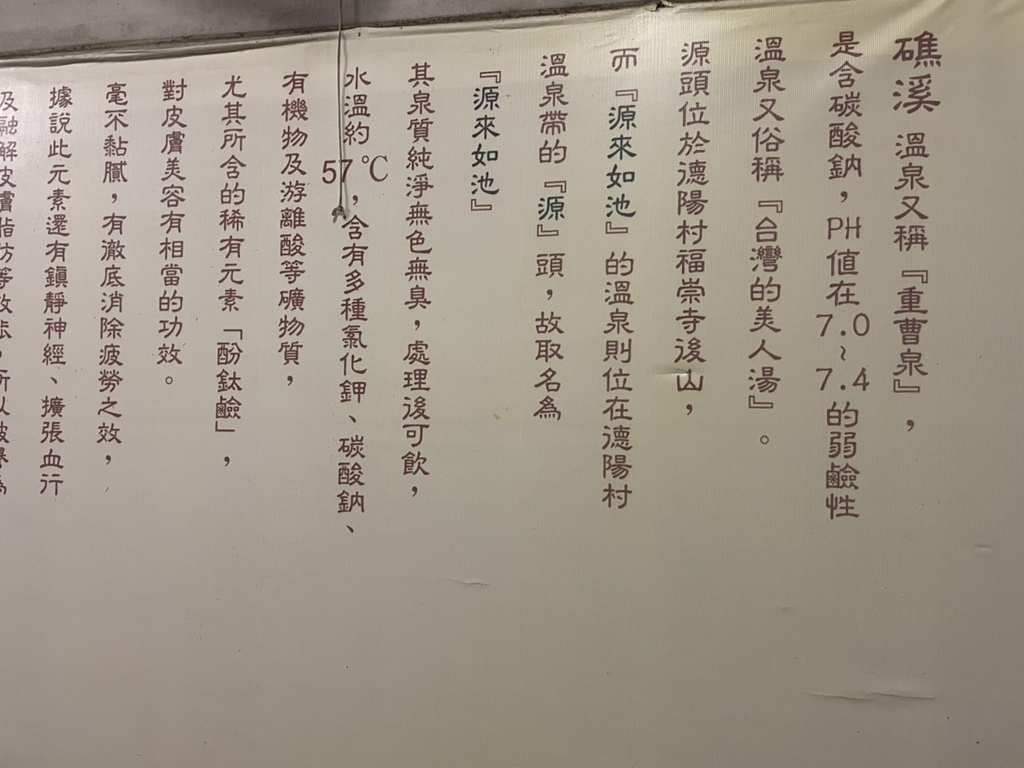 礁溪 溫泉又稱『重曹泉』，
是含碳酸鈉，PH值在7.0~7.4的弱鹼性
溫泉又俗稱『台灣的美人湯』。
源頭位於德陽村福崇寺後山，
而『源來如池』的溫泉則位在德陽村
溫泉帶的『源』頭，故取名為
『源來如池』
其泉質純淨無色無臭，處理後可飲，
水溫約57℃，含有多種氯化鉀、碳酸鈉、
有機物及游離酸等礦物質，
尤其所含的稀有元素「酚鈦鹼」，
對皮膚美容有相當的功效。
毫不黏膩，有澈底消除疲勞之效，
據說此元素還有鎮靜神經、擴張血行
及融解皮膚脂肪等效